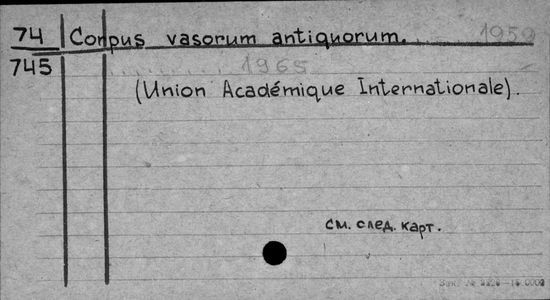 74 Corpus vasorum antiquorum. 1959
745 1965
(Union Académique Internationale).
см. след. карт.